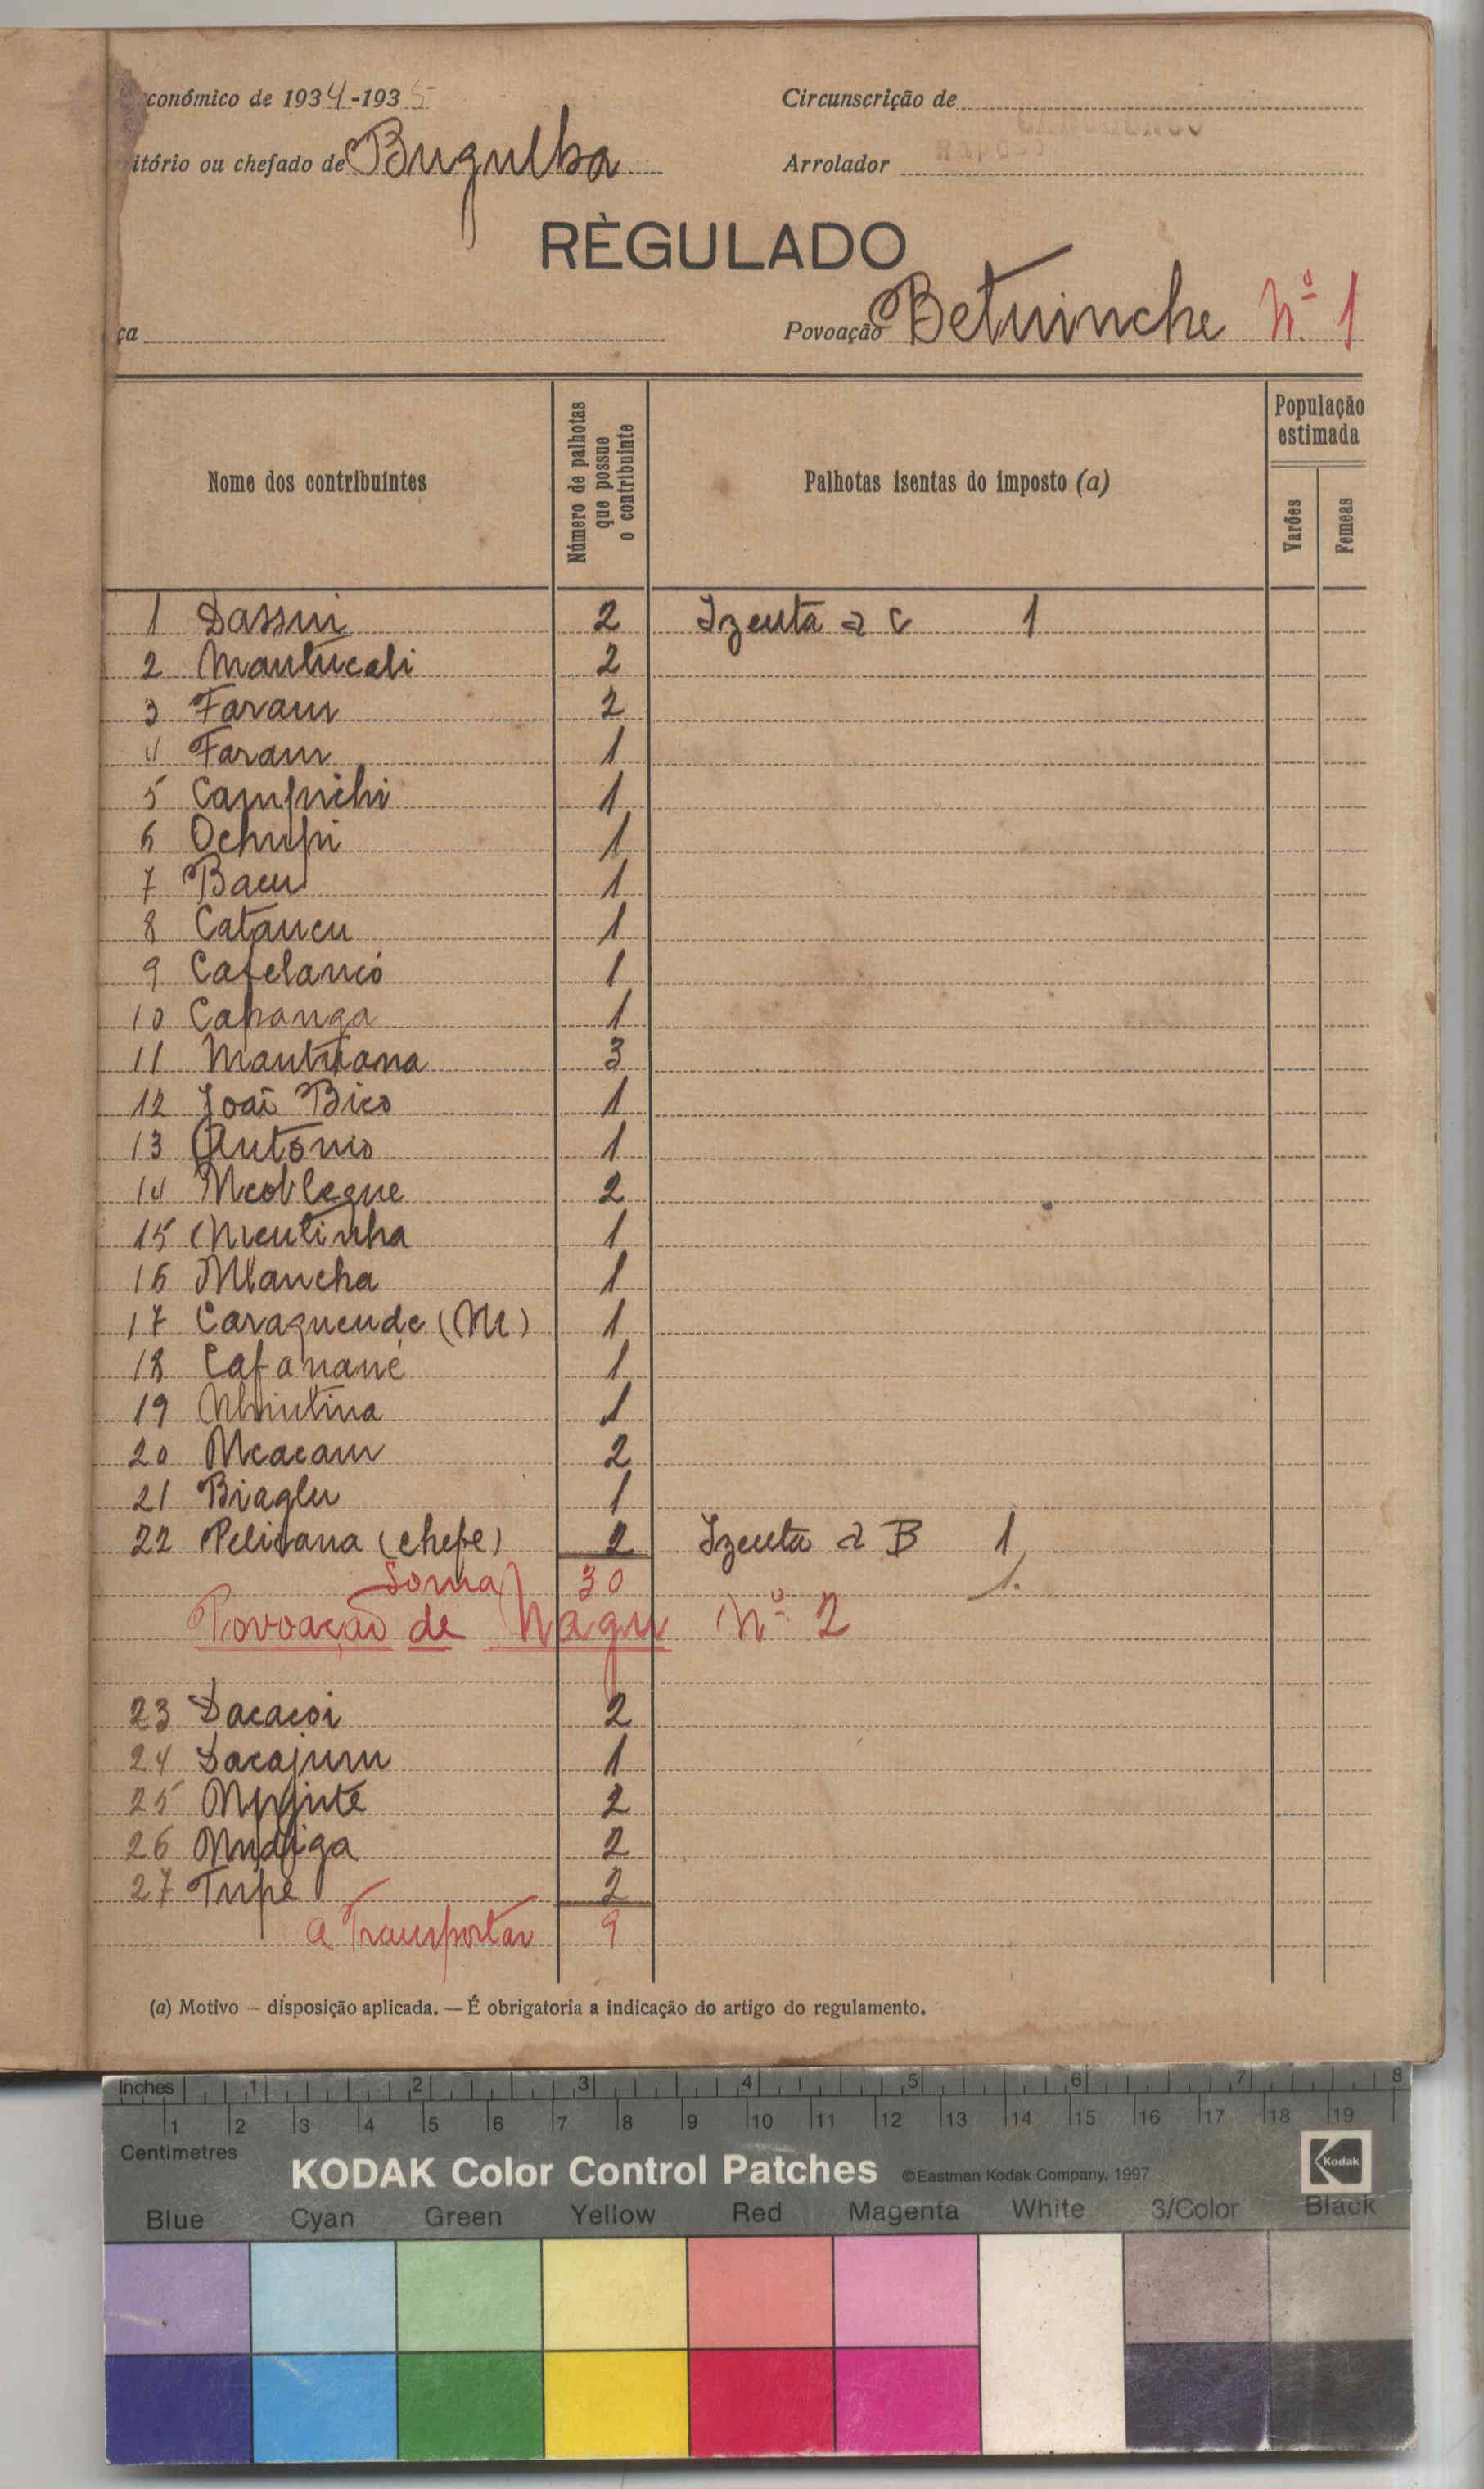 conómico de 1934-1935 Circunscrição de
itório ou chefado de Bugulha Arrolador
RÈGULADO
ça Povoação Betuinche Nº 1
Nome dos contribuintes
Número de palhotas que possue o contribuinte
Palhotas isentas do imposto (a)
População estimada
Varões
Femeas
1 Dassui 2 Izenta a C 1
2 Mantucali 2
3 Faram 2
4 Faram 1
5 Campuchi 1
6 Ochupi 1
7 Bacu 1
8 Catancu 1
9 Cafelancó 1
10 Capanga 1
11 3
12 João Bico 1
13 António 1
14 Mcoblegue 2
15 1
16 Mlancha 1
17 Caraquende (M) 1
18 Cafanané 1
19 1
20 Mcacam 2
21 Biaglu 1
22 Pelisana (chefe) 2 Izenta a B 1
Soma 30 1.
Povoação de Nagu Nº 2
23 Dacacoi 2
24 Dacajum 1
25 2
26 2
27 Tupe 2
A Transportar 9
(a) Motivo — disposição aplicada. — É obrigatoria a indicação do artigo do regulamento.
Inches 1 2 3 4 5 6 7 8
1 2 3 4 5 6 7 8 9 10 11 12 13 14 15 16 17 18 19
Centimetres
KODAK Color Control Patches ©Eastman Kodak Company, 1997 Kodak
Blue Cyan Green Yellow Red Magenta White 3/Color Black